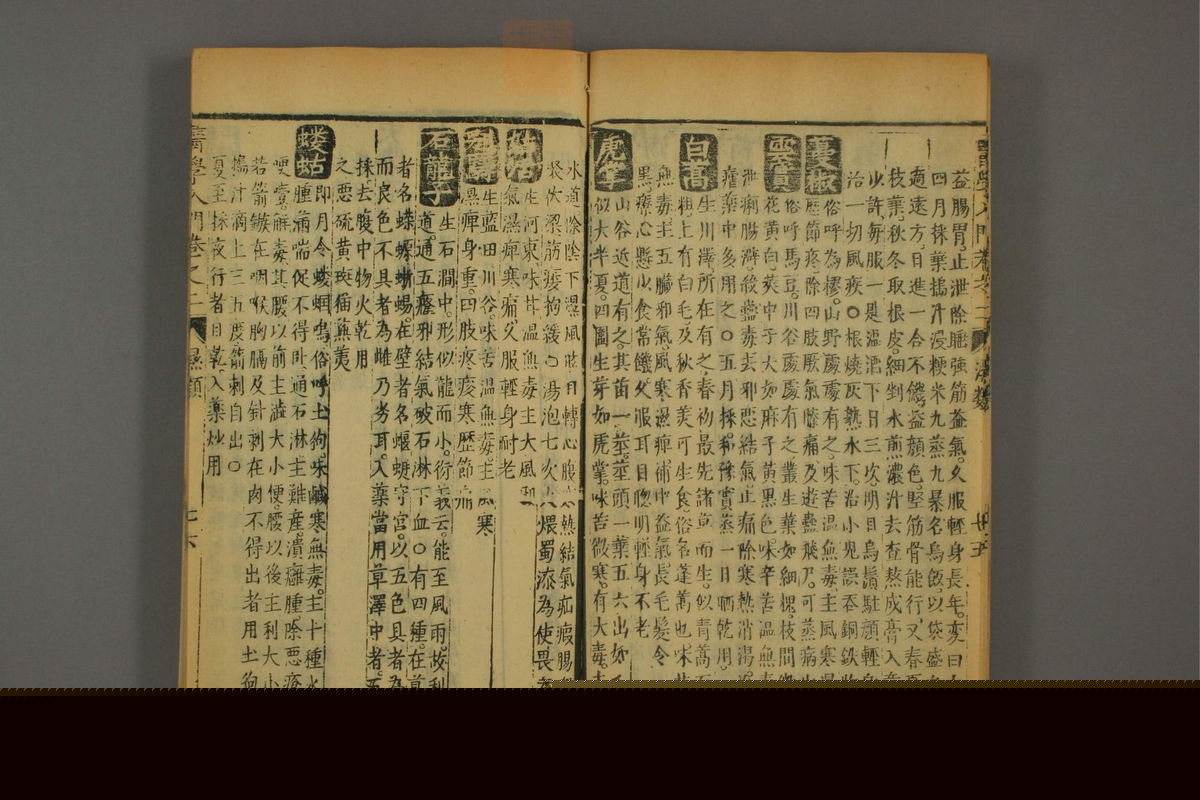 益腸胃止泄除睡強筋益氣久服輕身長年変曰
四月採葉搗汁浸粳米九蒸九暴名烏飯以袋盛
適遠方日進一合不饑益顔色堅筋骨能行又春夏
枝葉秋冬取根皮細剉水煎濃汁去查熬成膏入
少許每服一匙溫酒下日三次明目烏鬚駐顔輕身
治一切風疾○根燒灰熱水下治小児誤吞銅鉄物
蔓椒
俗呼為樛山野處處有之味苦溫無毒主風寒濕
歷節疼除四肢厥氣膝痛及遊蠱飛尸可蒸病出
雲實
俗呼馬豆川谷處處有之叢生葉如細槐枝間微
花黃白莢中子大如麻子黃黑色味辛苦溫無毒
泄痢腸澼殺蠱毒去邪惡結氣止痛除寒熱消渴
瘧藥中多用之○五月採花實蒸一日晒乾用
白蒿
生川澤所在有之春初最先諸草而生似青蒿而
粗上有白毛及秋香美可生食俗名蓬蒿也味甘
無毒主五臟邪氣風寒濕痺補中益氣長毛髮令
黑療心懸少食常饑久服耳目聰明輕身不老
虎掌
山谷近道有之其苗一莖莖頭一葉五六出如爪
似大半夏四圍生芽如虎掌味苦微寒有大毒
水道除陰下濕風眩目轉心腹寒熱結氣疝瘕腸
裝伏梁筋痿拘緩○湯泡七次火煨蜀漆為使畏
生河東味甘溫無毒主大風
氣濕痺寒痛久服輕身耐老
生藍田川谷味苦溫無毒主風寒
濕痺身重四肢疼痠寒歷節痛
石龍子
生石澗中形似龍而小衍義云能至風雨故利
道通五癃邪結氣破石淋下血○有四種在草
者名蠑螈蜥蜴在壁者名蝘蜓守宮以五色具者為
而良色不具者為雌乃劣耳入藥當用草澤中者五
採去腹中物火乾用
之惡硫黃斑猫蕪荑
螻蛄
即月令螻蟈鳴俗呼土狗味鹹寒無毒主十種水
腫滿喘促不得卧通石淋主難產潰癰腫除惡瘡
哽噎解毒其腰以前主澁大小便腰以後主利大小
若箭鏃在咽喉胸膈及針刺在肉不得出者用土狗
搗汁滴上三五度箭刺自出○
夏至採夜行者日乾入藥炒用
醫學入門 卷之二
濕類
七十六